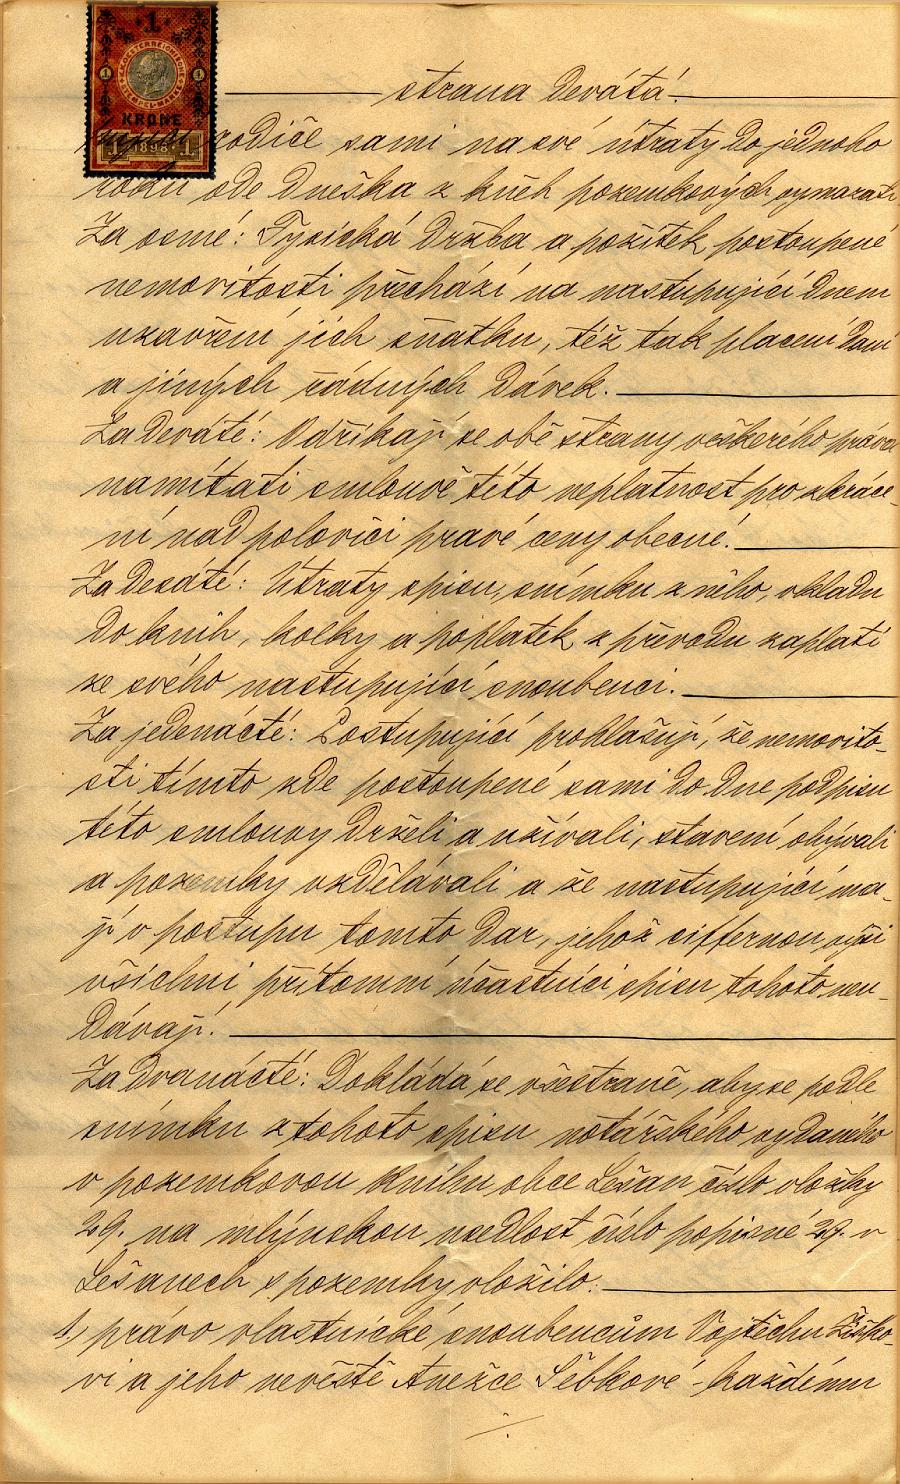 1
K.K. OESTERREICHISCHE STEMPEL-MARKE
1 1
KRONE
1 1898 1
strana devátá.
rodiče sami na své útraty do jednoho
roku ode dneška z kněh pozemkových vymazati
Za osmé: Fysická držba a požitek postoupené
nemovitosti přechází na nastupující dnem
uzavření jich sňatku, též tak placení daní
a jiných řádných dávek.
Za deváté: Odříkají se obě strany veškerého práva
namítati smlouvě této neplatnost pro zkráce-
ní nad polovici pravé ceny obecné.
Za desáté: Útraty spisu, snímku z něho, vkladu
do knih, kolky a poplatek z převodu zaplatí
ze svého nastupující snoubenci.
Za jedenácté: Postupující prohlašují, že nemovito-
sti tímto zde postoupené sami do dne podpisu
této smlouvy drželi a užívali, stavení obývali
a pozemky vzdělávali a že nastupující ma-
jí v postupu tomto dar, jehož ciffernou výši
všichni přítomní účastníci spisu tohoto neu-
dávají.
Za dvanácté: Dokládá se všestraně, aby se podle
snímku z tohoto spisu notářského vydaného
v pozemkovou knihu obce Lešan číslo vložky
29. na mlýnskou usedlost číslo popisné 29. v
Lešanech s pozemky vložilo:
1, právo vlastnické snoubencům Vojtěchu Žižko-
vi a jeho nevěstě Anežce Šebkové - každému